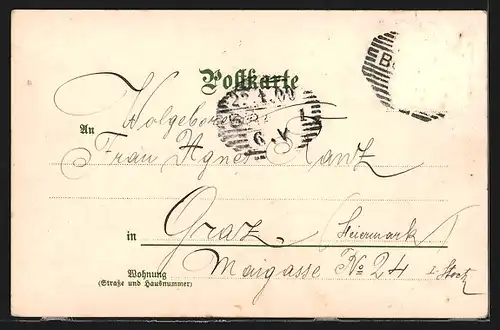 Postkarte
Wolgeboren
An
Frau Agnes Kanz
in Graz (Steiermark)
Wohnung
(Straße und Hausnummer)
Maigasse No 24 I. Stock